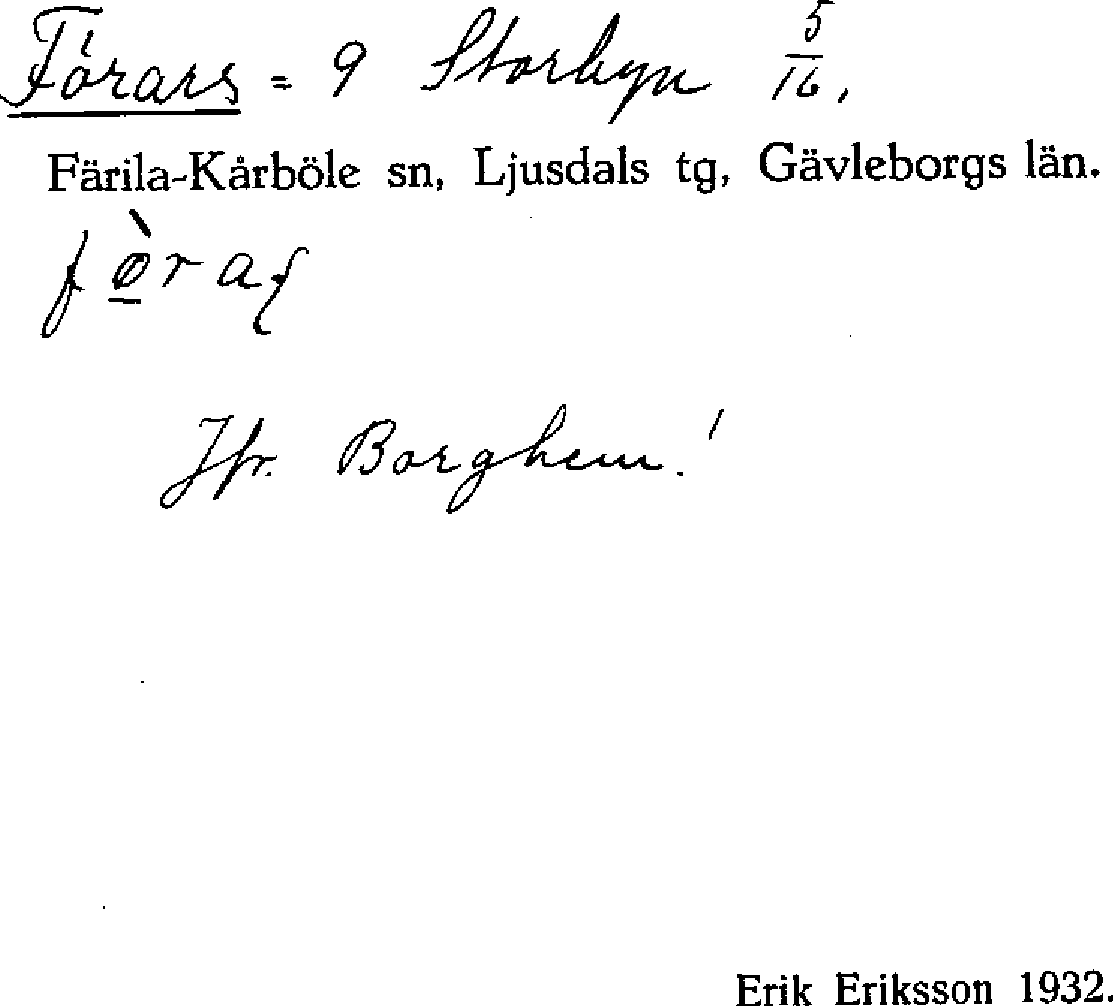 Förars = 9 Storbyn 5/16,
Färila-Kårböle sn, Ljusdals tg, Gävleborgs län.
Jfr. Borghem!
Erik Eriksson 1932.